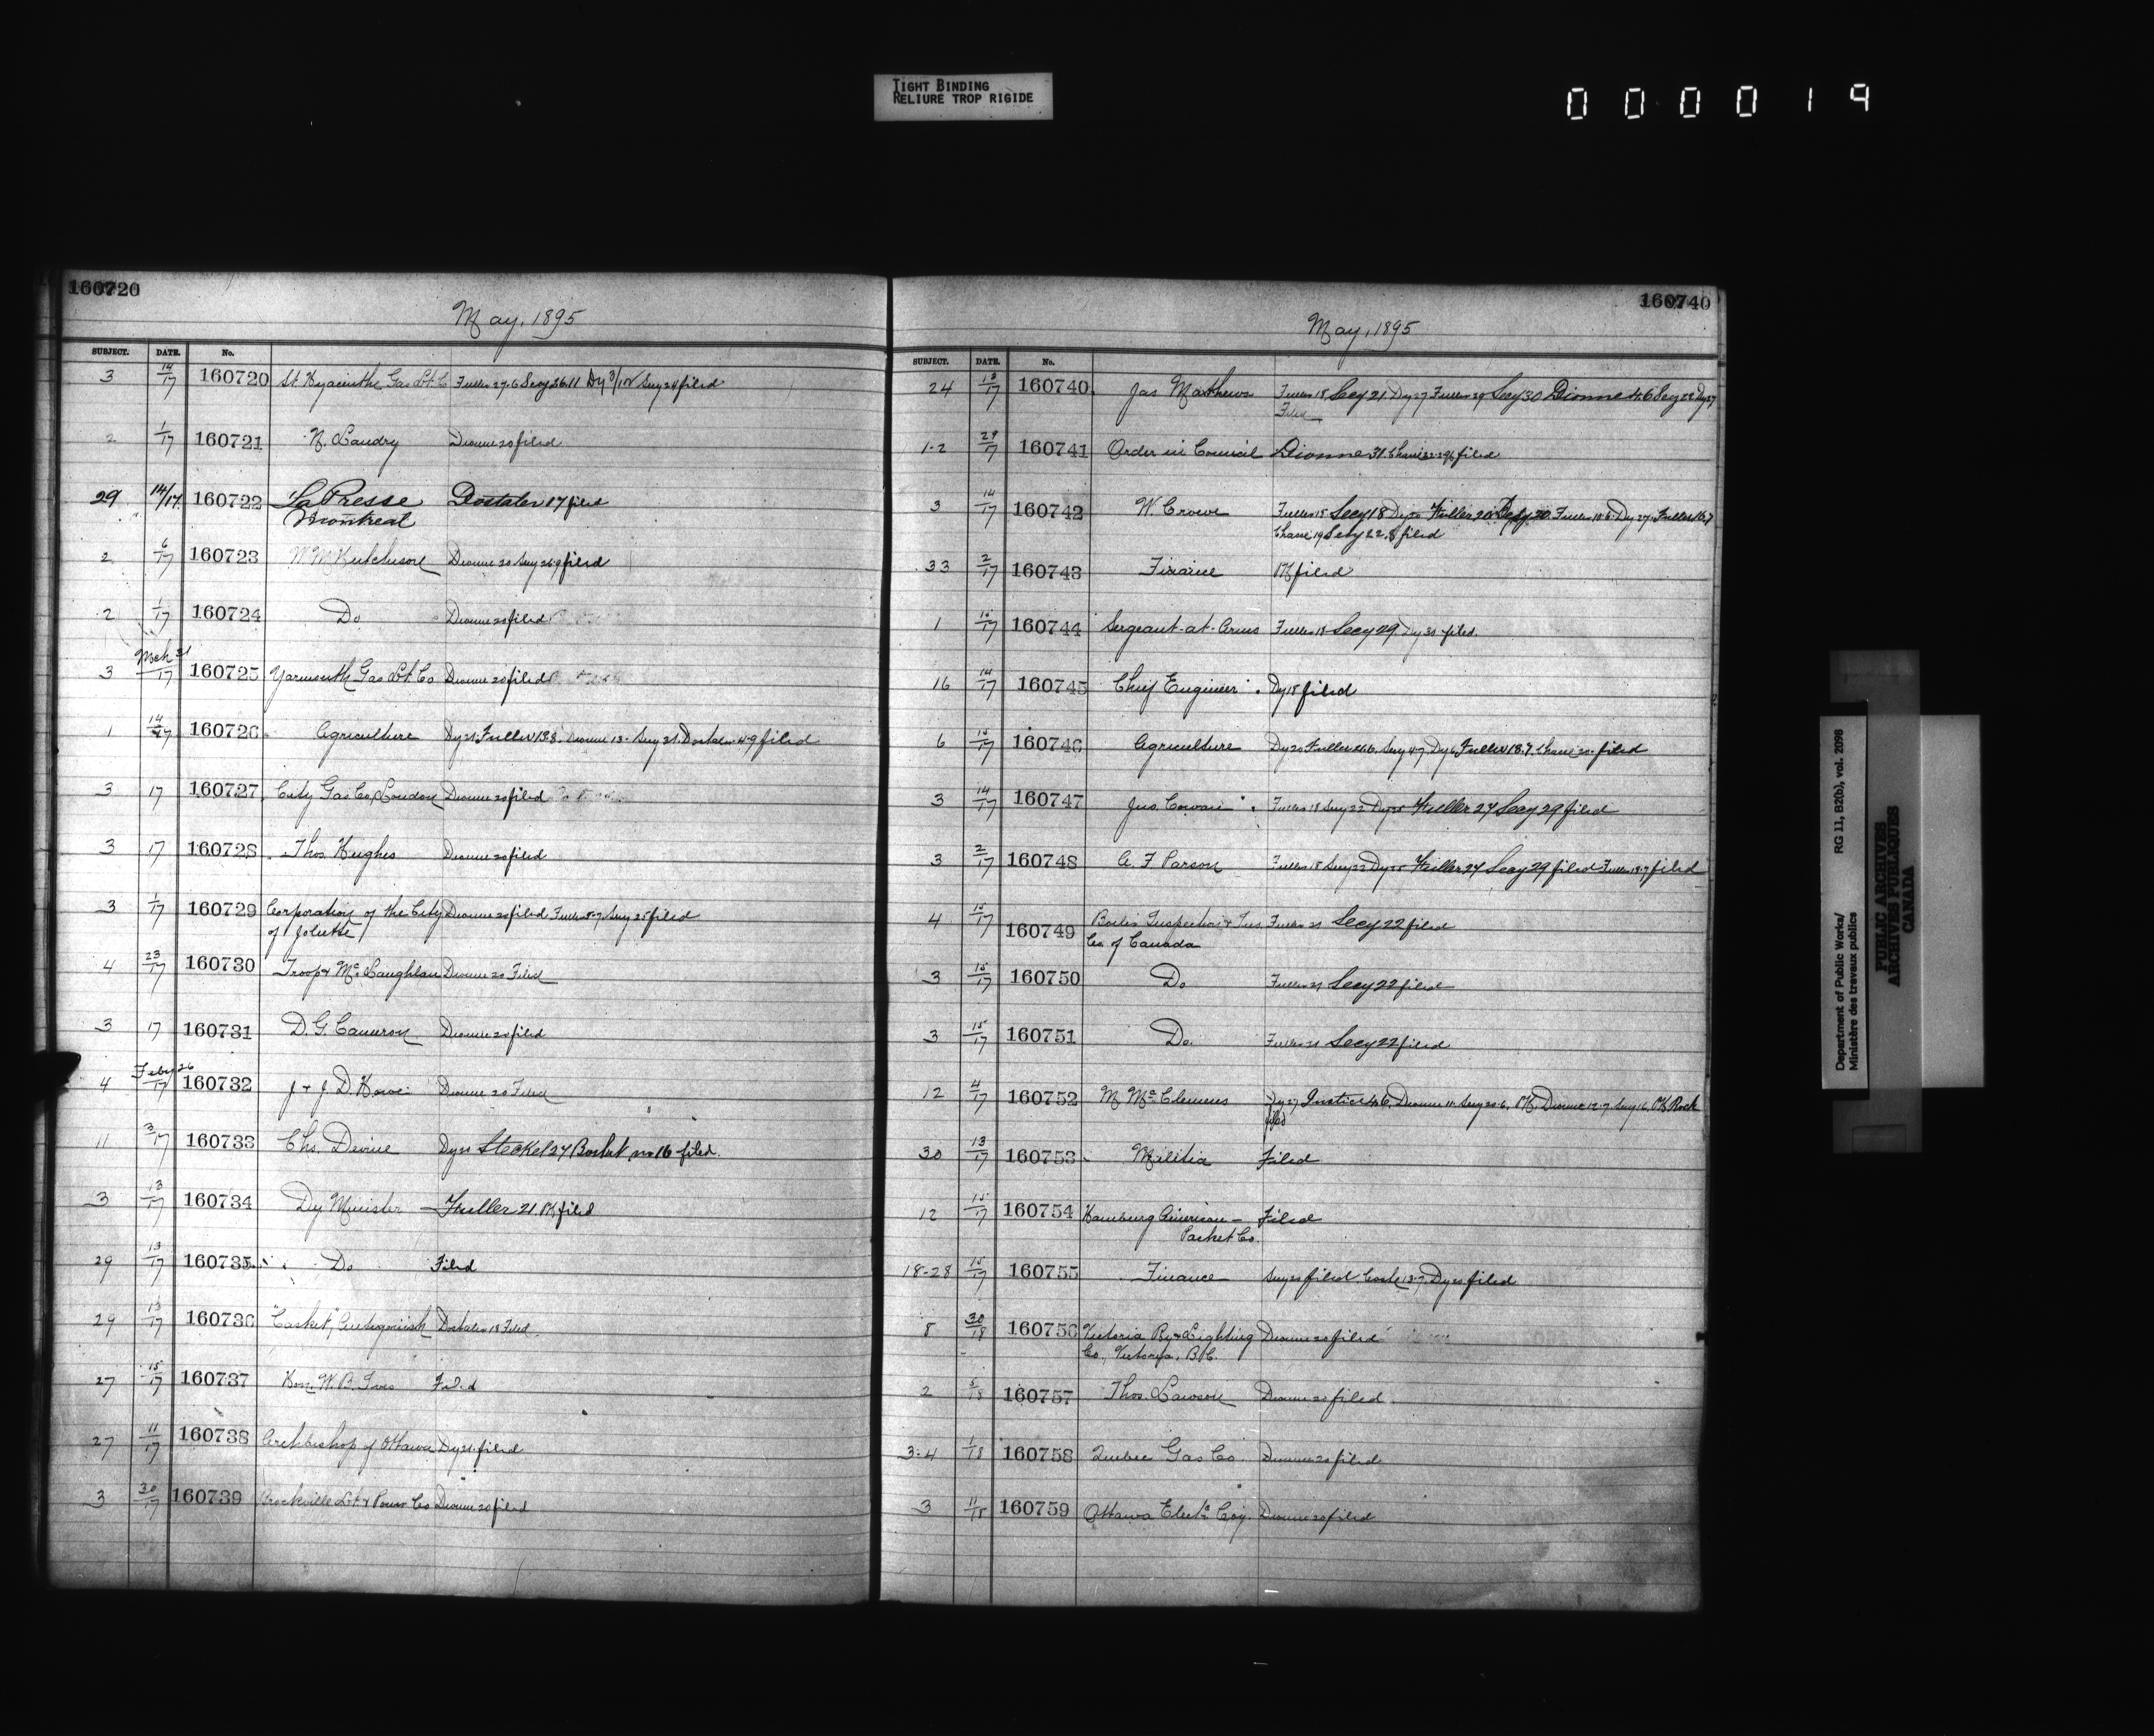 TIGHT BINDING
RELIURE TROP RIGIDE
000019
160720
May, 1895
SUBJECT. DATE. No.
3 14/17 160720 St. Hyacinthe Gas Lt. Co Fuller 27.6 Secy 26.11 Dy 3/12 Secy 24 filed
2 1/17 160721 N. Landry Dionne 20 filed
29 14/17 160722 "La Presse Dostaler 17 filed
Montreal
2 6/17 160723 W M Hutchison Dionne 20 Secy 26.9 filed
2 1/17 160724 Do Dionne 20 filed
Mch 31
3 /17 160725 Yarmouth Gas Lt. Co Dionne 20 filed
1 14/17 160726 Agriculture Dy 21. Fuller 13.8. Dionne 13. Secy 31. Dostaler 4.9 filed
3 17 160727 City Gas Co, London Dionne 20 filed
3 17 160728 Thos Hughes Dionne 20 filed
3 1/17 160729 Corporation of the City Dionne 20 filed Fuller 8.7 Secy 25 filed
of Joliette
4 23/17 160730 Troop & McLaughlan Dionne 20 Filed
3 17 160731 D. G. Cameron Dionne 20 filed
Feby 26
4 /17 160732 J & J. D. Howe Dionne 20 Filed
11 3/17 160733 Chs. Devine Dy 21 Steckel 27 filed.
3 13/17 160734 Dy Minister Fuller 21 filed
29 13/17 160735 Do Filed
29 13/17 160736 "Casket", Antigonish Dostaler 18 Filed
27 15/17 160737 Hon. W. B. Ives Filed
27 11/17 160738 Archbishop of Ottawa Dy 21. filed
3 30/17 160739 Brockville Lt & Power Co Dionne 20 filed
160740
May, 1895
SUBJECT. DATE. No.
24 13/17 160740 Jas Matthews Fuller 18 Secy 21. Dy 27 Fuller 29 Secy 30 Dionne 4.6 Secy 22 Dy 27
Filed
1-2 29/17 160741 Order in Council Dionne 31 filed
3 14/17 160742 W. Crowe Fuller 18 Secy 18 Dy 20 Fuller 20 Fuller 10.6. Dy 27. Fuller 16.7
Secy 22.8 filed
33 2/17 160743 Finance filed
1 15/17 160744 Sergeant-at-Arms Fuller 18 Secy 29 Dy 30 filed.
16 14/17 160745 Chief Engineer Dy 18 filed
6 15/17 160746 Agriculture Dy 20 Fuller 21.6. Secy 4.7. Dy 6. Fuller 18.7 filed
3 14/17 160747 Jno Cowan Fuller 18 Secy 22 Dy 25 Fuller 27 Secy 29 filed
3 2/17 160748 A. F Parson Fuller 18 Secy 22 Dy 25 Fuller 27 Secy 29 filed Fuller 18.7 filed
4 15/17 160749 Boiler Inspection & Ins Fuller 21 Secy 22 filed
Co. of Canada
3 15/17 160750 Do Fuller 21 Secy 22 filed
3 15/17 160751 Do Fuller 21 Secy 22 filed
12 4/17 160752 M McClemens Dy 27 Justice 4.6. Dionne 11. Secy 20.6. Dionne 12.7. Secy 16.
filed
30 13/17 160753 Militia Filed
12 15/17 160754 Hamburg American — Filed
Packet Co.
18-28 15/17 160755 Finance Secy 20 filed. Dy 20 filed
8 30/18 160756 Victoria Ry & Lighting Dionne 20 filed
Co., Victoria, B.C.
2 5/18 160757 Thos. Lawson Dionne 20 filed
3-4 1/18 160758 Quebec Gas Co Dionne 20 filed
3 11/18 160759 Ottawa Elect. Coy. Dionne 20 filed
Department of Public Works/ RG 11, B2(b), vol. 2098
Ministère des travaux publics
PUBLIC ARCHIVES
ARCHIVES PUBLIQUES
CANADA